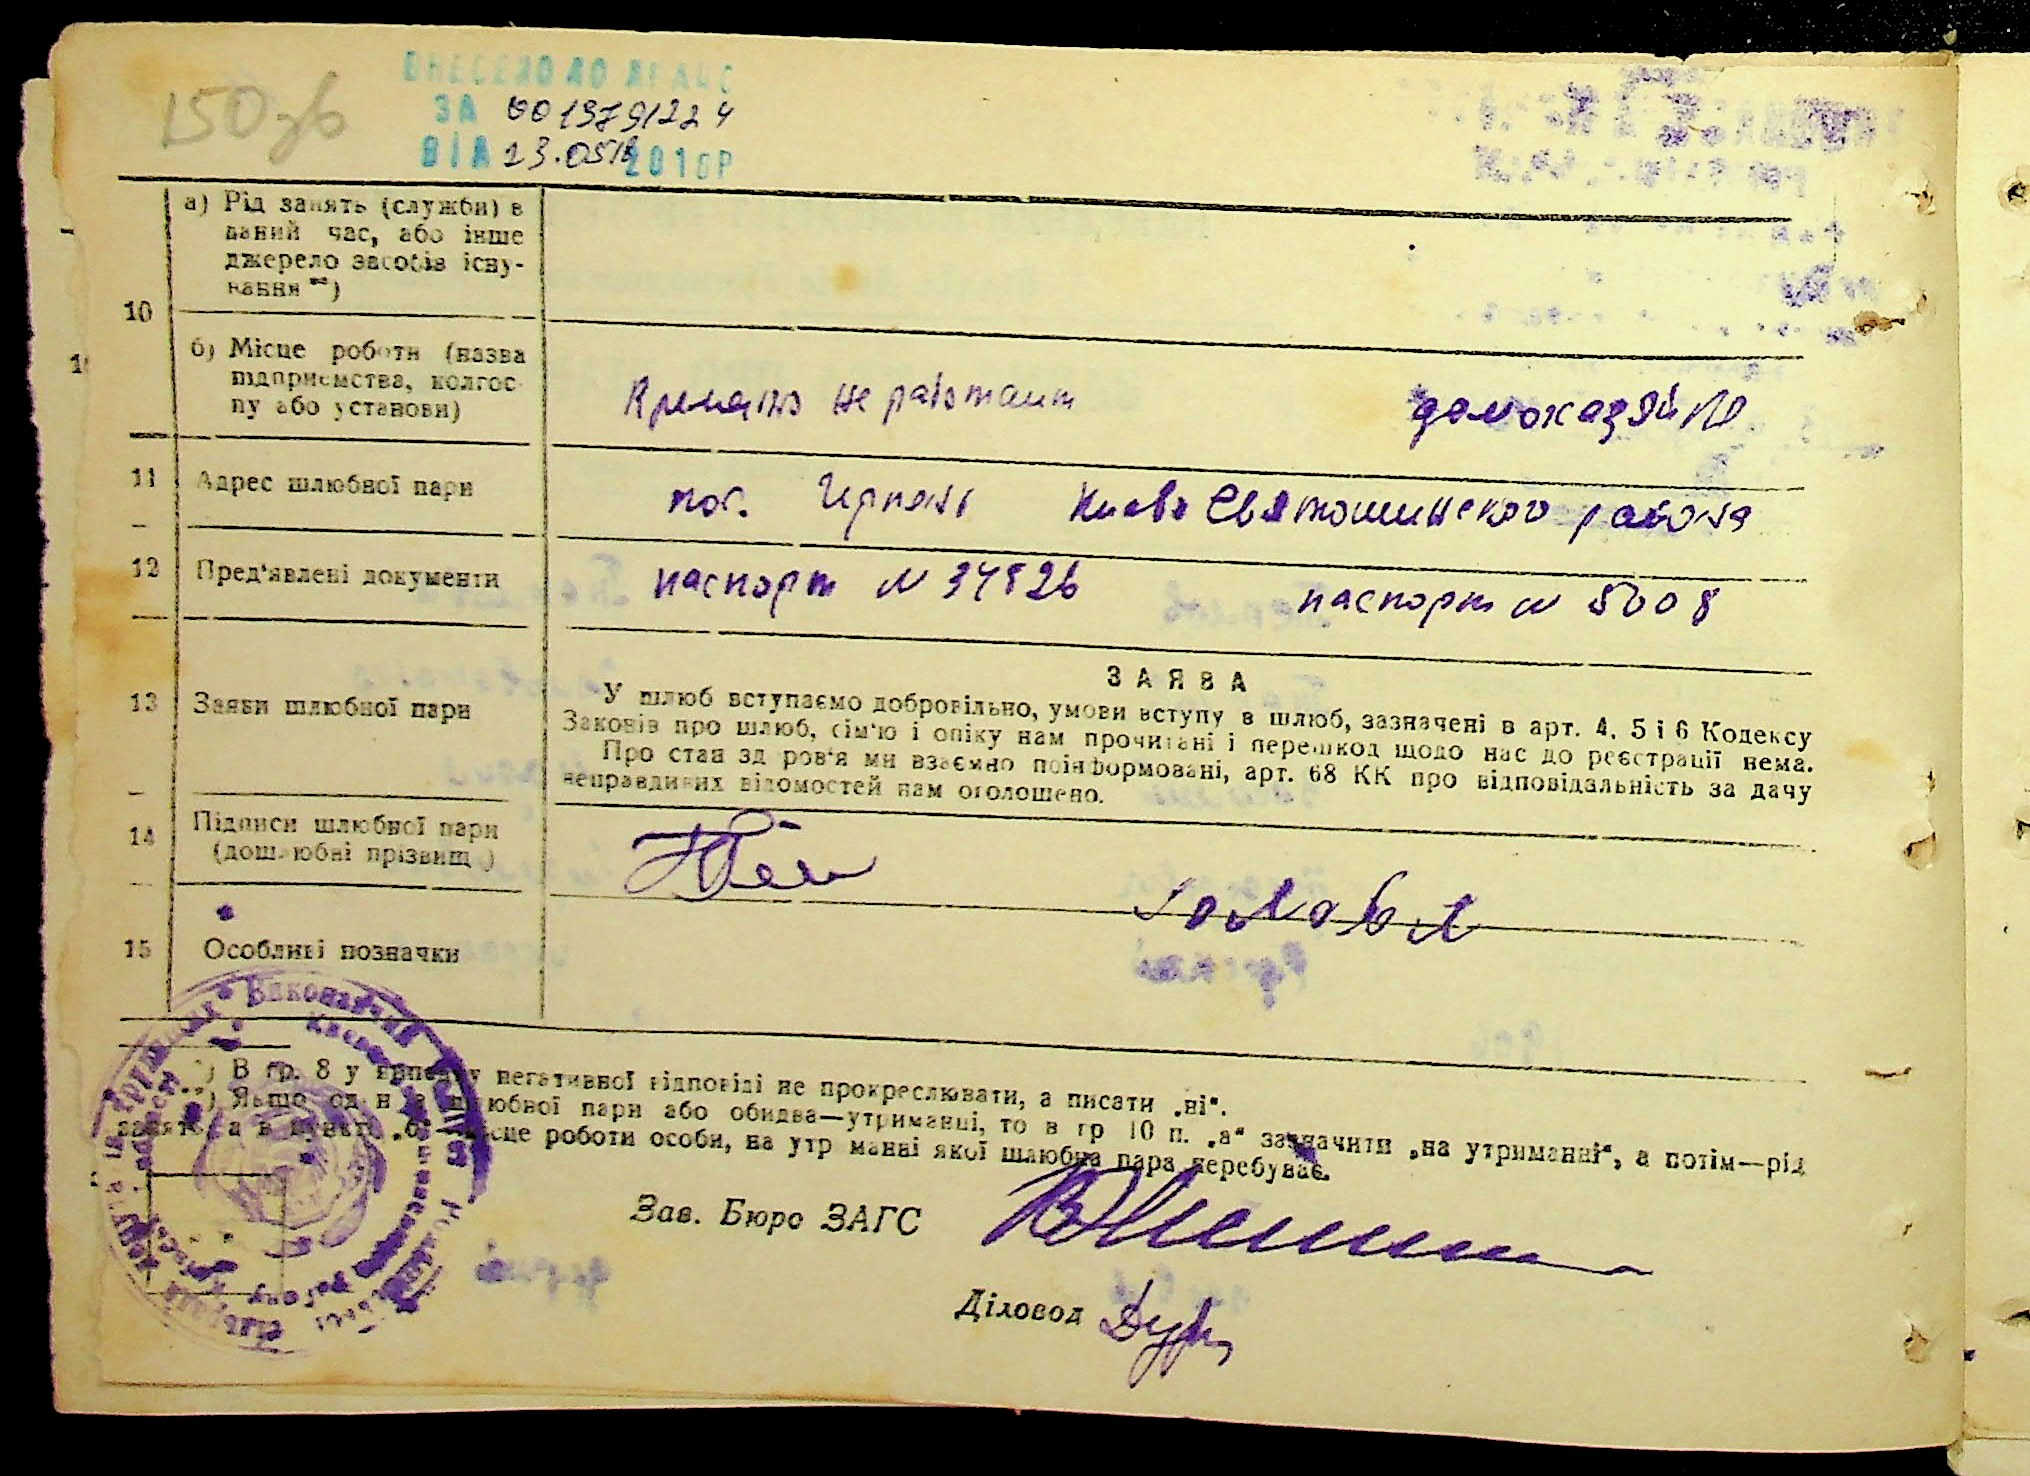 150зв
ВНЕСЕНО ДО ДРАЦС
ЗА 0019791224
ВІД 13.05 2016Р
10
а) Рід занять (служби) в
даний час, або інше
джерело засобів існу-
вання **)
б) Місце роботи (назва
підприємства, колгос-
пу або установи)
не работает домохазяйка
11 Адрес шлюбної пари
пос. Ирпень Киево Святошинского района
12 Пред'явлені документи
паспорт № 34526 паспорт № 5008
13 Заяви шлюбної пари
ЗАЯВА
У шлюб вступаємо добровільно, умови вступу в шлюб, зазначені в арт. 4, 5 і 6 Кодексу
Законів про шлюб, сім'ю і опіку нам прочитані і перешкод щодо нас до реєстрації нема.
Про стан здоров'я ми взаємно поінформовані, арт. 68 КК про відповідальність за дачу
неправдивих відомостей нам оголошено.
14 Підписи шлюбної пари
(дошлюбні прізвищ )
15 Особливі позначки
*) В гр. 8 у випадку негативної відповіді не прокреслювати, а писати „ні“.
**) Якщо один з шлюбної пари або обидва—утриманці, то в гр 10 п. „а“ зазначити „на утриманні“, а потім—рід
занять, а в пункті „б“—місце роботи особи, на утриманні якої шлюбна пара перебуває.
Зав. Бюро ЗАГС
Діловод